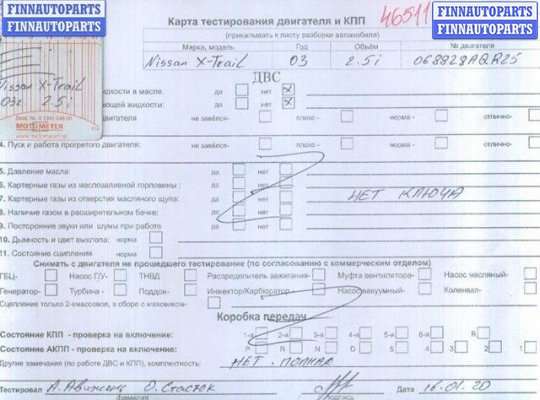 FINNAUTOPARTS
FINNAUTOPARTS
FINNAUTOPARTS
FINNAUTOPARTS
Карта тестирования двигателя и КПП
46511
(прикалывать к листу разборки автомобиля)
Марка, модель Год Объём № двигателя
Nissan X-Trail 03 2.5i 068828AQR25
ДВС
Nissan X-Trail
03г 2.5i
MOTOMETER
дкости в масле. да нет x
ющей жидкости: да нет x
двигателя не завёлся- плохо - норма - отлично-
4. Пуск и работа прогретого двигателя: не завёлся- плохо - норма - отлично-
5. Давление масла: да нет
6. Картерные газы из маслозаливной горловины: да нет
7. Картерные газы из отверстия масляного щупа: да нет НЕТ КЛЮЧА
8. Наличие газов в расширительном бачке: да нет
9. Посторонние звуки или шумы при работе да нет
10. Дымность и цвет выхлопа: норма
11. Состояние сцепления норма
Снимать с двигателя не прошедшего тестирование (по согласованию с коммерческим отделом)
ГБЦ- Насос ГУ- ТНВД Распределитель зажигания- Муфта вентилятора- Насос масляный-
Генератор- Турбина - Поддон- Инжектор/Карбюратор Насос вакуумный- Коленвал-
Сцепление только 2-хмассовое, в сборе с маховиком-
Коробка передач
Состояние КПП - проверка на включение: 1-я 2-я 3-я 4-я 5-я 6-я R
Состояние АКПП - проверка на включение: P R N D 5 4 3 2 1
Другие замечания (по работе ДВС и КПП), комплектность: НЕТ - ПОЛНАЯ
Тестировал Дата 16.01.20
фамилия подпись